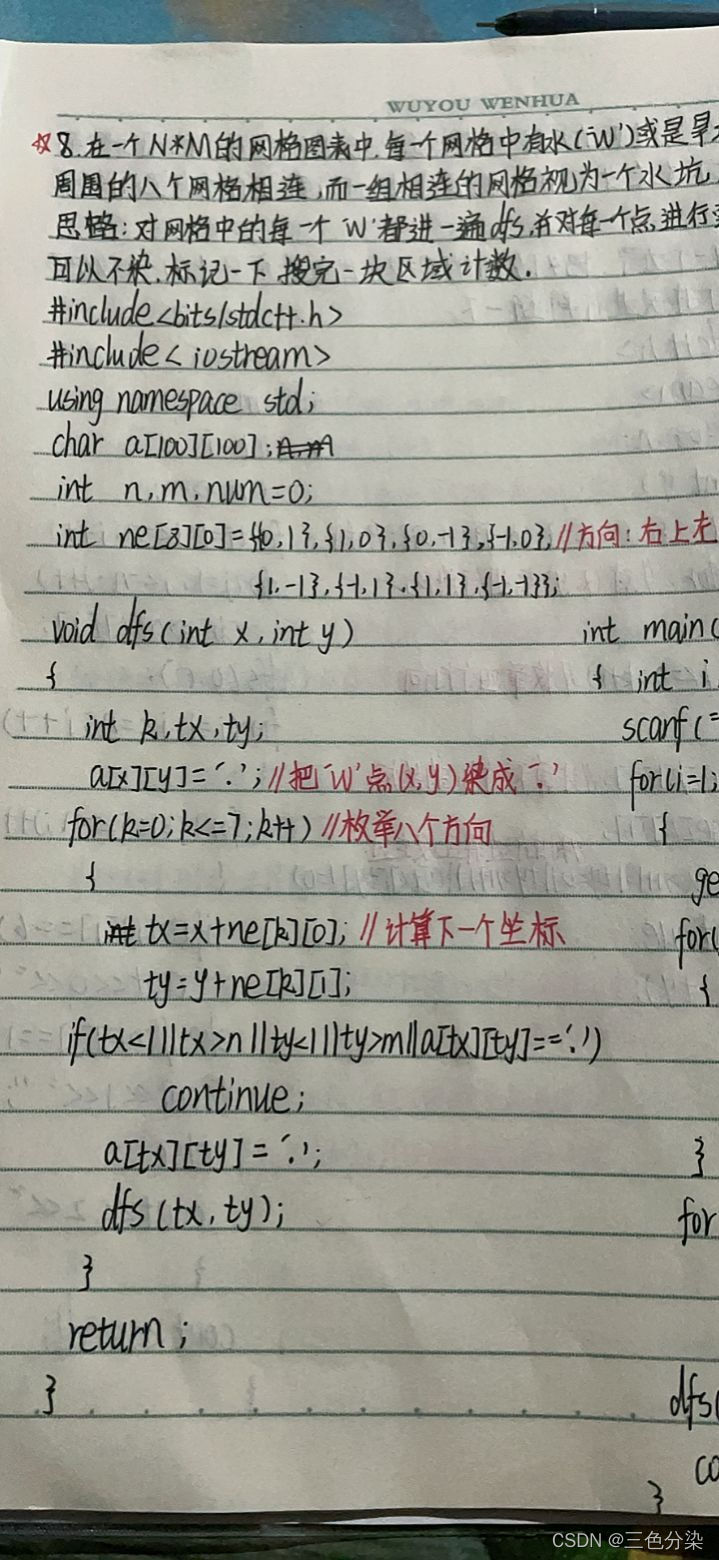 WUYOU WENHUA
☆8.在一个N*M的网格图表中,每一个网格中有水('W')或是旱
周围的八个网格相连,而一组相连的网格视为一个水坑
思路:对网格中的每一个'W'都进一遍dfs,并对每一个点进行
可以不染,标记一下,搜完一块区域计数.
#include<bits/stdc++.h>
#include<iostream>
using namespace std;
char a[100][100];
int n,m,num=0;
int ne[8][0]={{0,1},{1,0},{0,-1},{-1,0}, //方向:右上左
{1,-1},{-1,1},{1,1},{-1,-1}};
void dfs(int x,int y)
int main(
{
{ int i
int k,tx,ty;
scanf("
a[x][y]='.'; //把'W'点(x,y)染成'.'
for(i=1;
for(k=0;k<=7;k++) //枚举八个方向
{
{
ge
tx=x+ne[k][0]; //计算下一个坐标
for(
ty=y+ne[k][1];
{
if(tx<1||tx>n||ty<1||ty>m||a[tx][ty]=='.')
continue;
a[tx][ty]='.';
}
dfs(tx,ty);
for
}
return;
}
dfs(
co
}
CSDN @三色分染